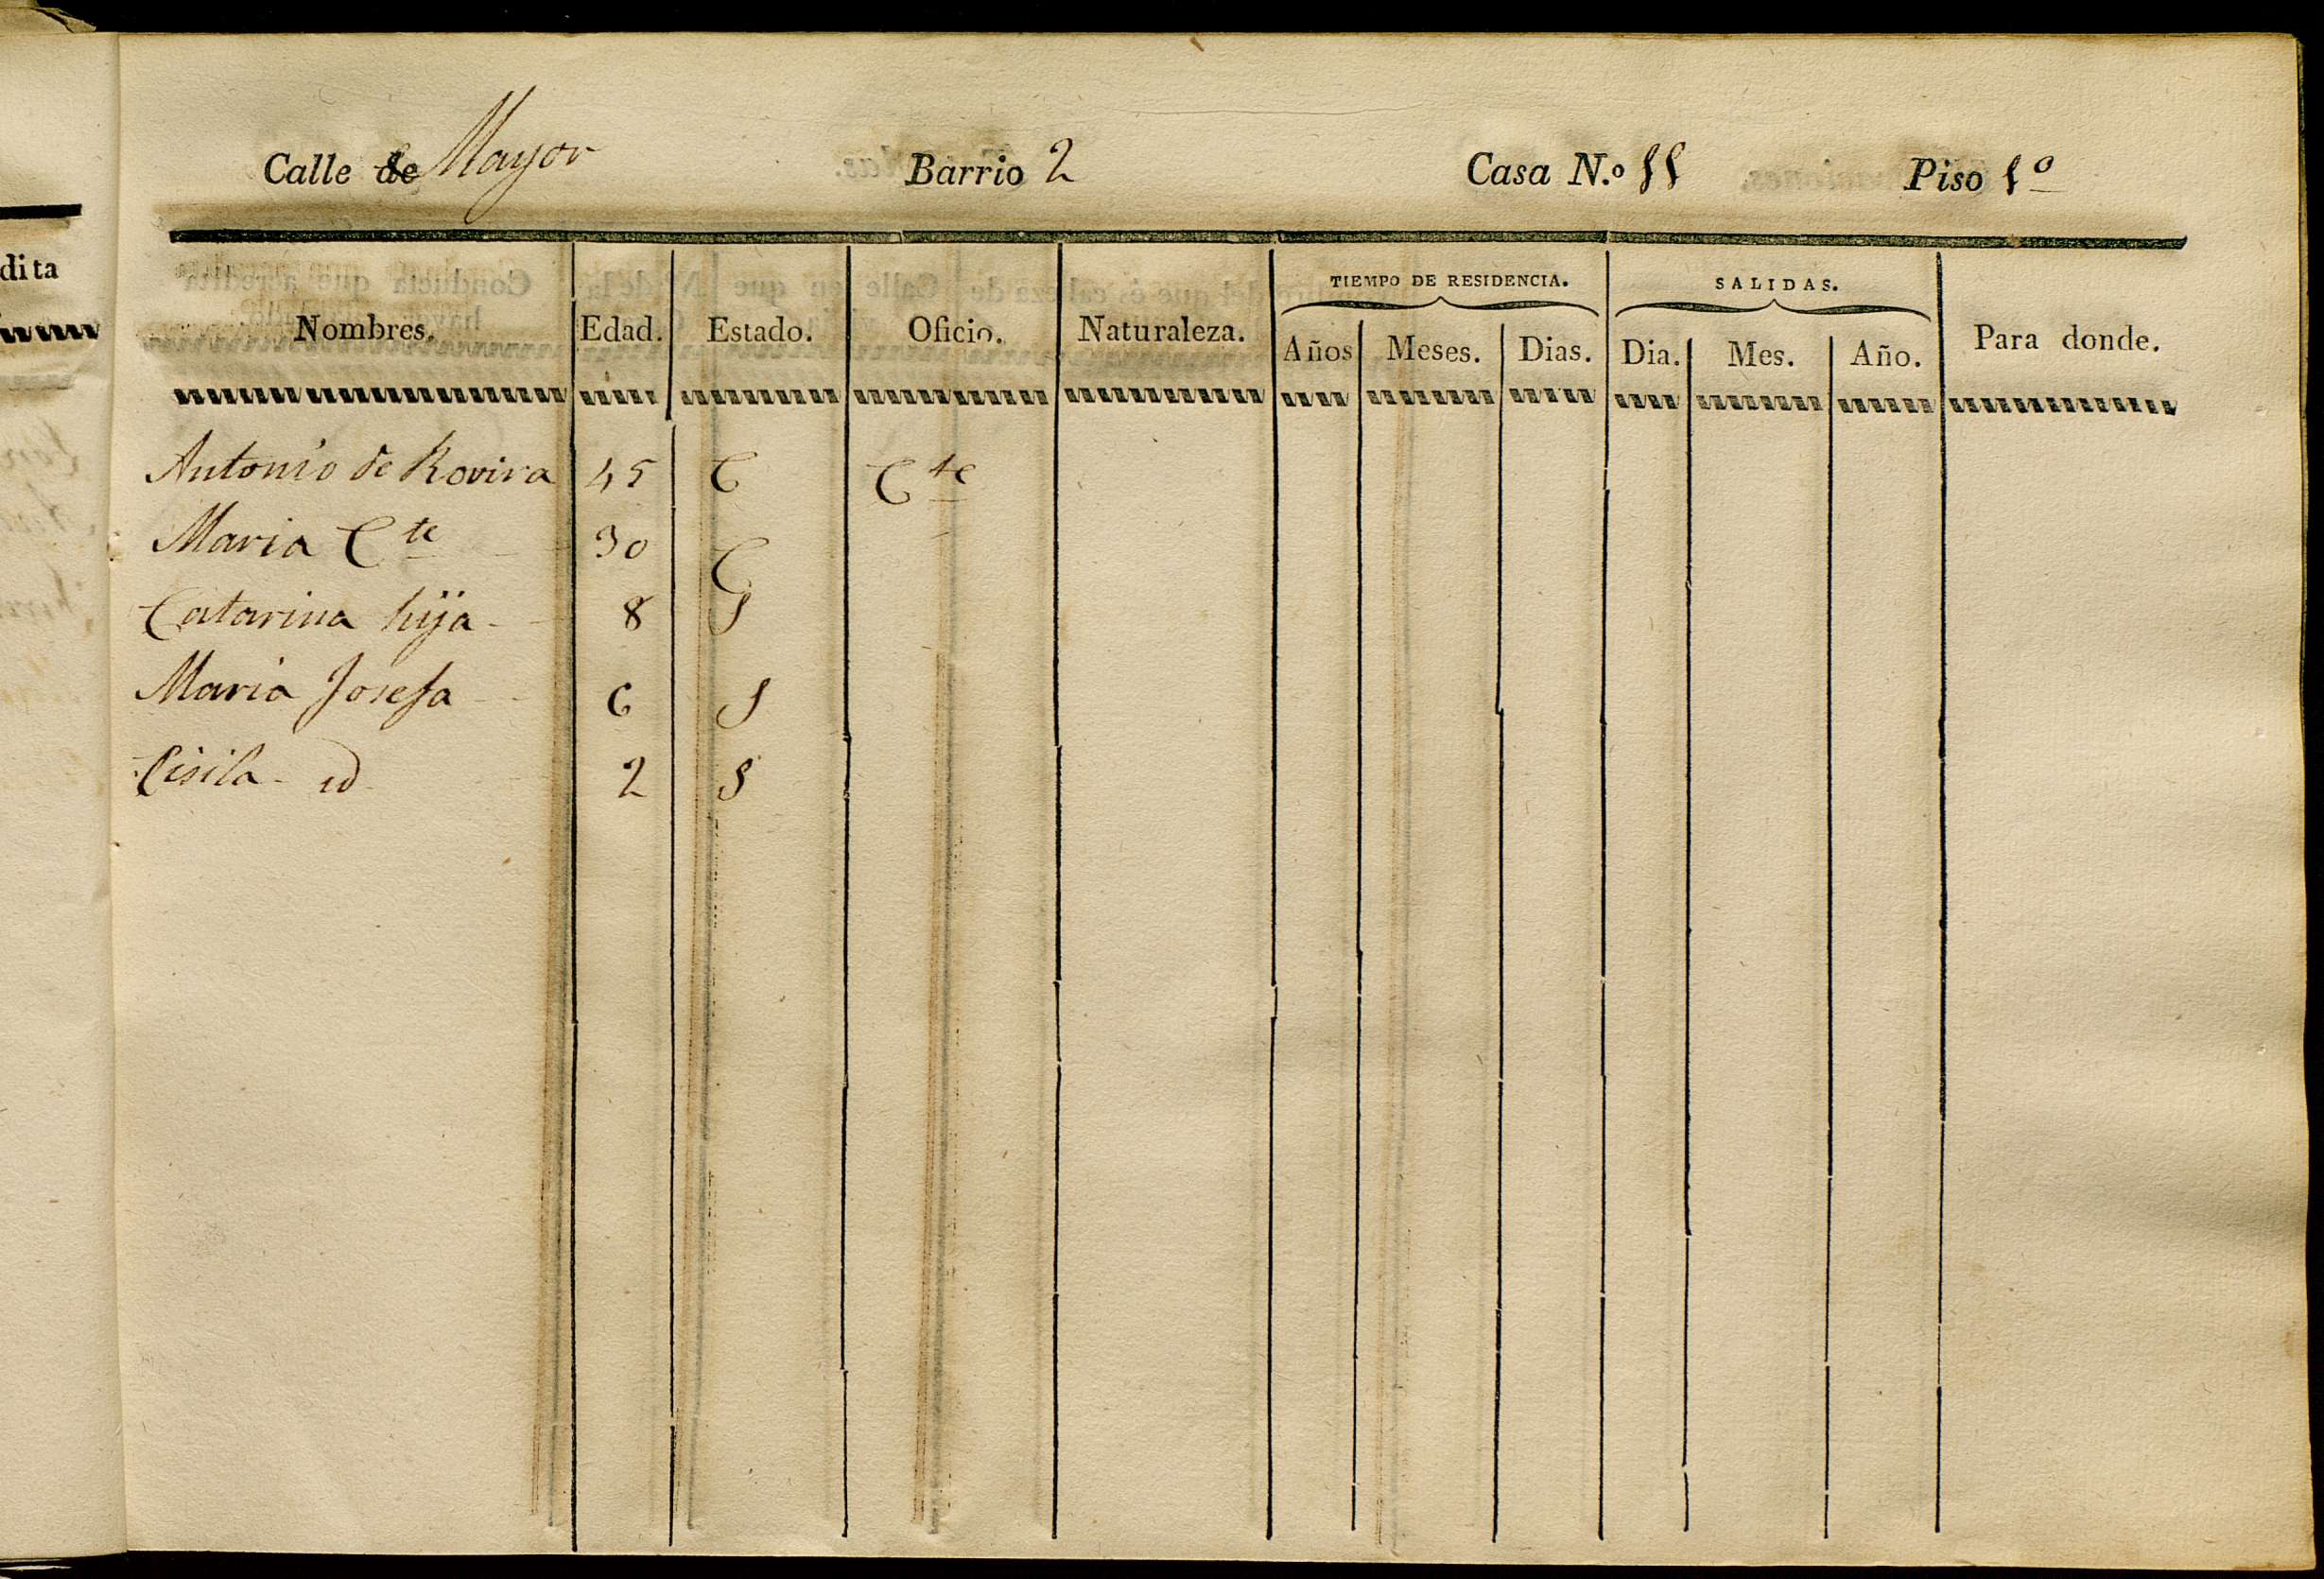 Calle de Mayor Barrio 2 Casa N.o 11 Piso 1o
dita
TIEMPO DE RESIDENCIA. SALIDAS.
Nombres. Edad. Estado. Oficio. Naturaleza. Años Meses. Dias. Dia. Mes. Año. Para donde.
Antonio de Rovira 45 C Cte
Maria Cte 30 C
Catarina hija 8 S
Maria Josefa 6 S
Cisila id 2 S